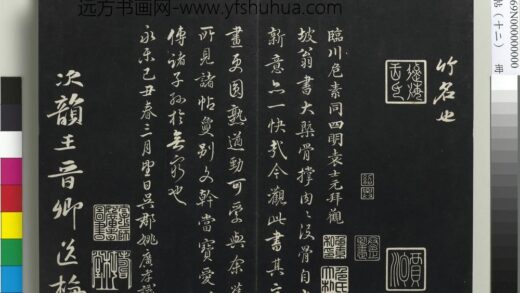 远方书画网-www.yfshuhua.com
69N00000000000
帖（十二）
竹名也
臨川危素同四明袁士元拜觀
坡翁書大槩骨撑肉肉沒骨自
新意亦一快哉今觀此書其
畫更圓熟遒勁可愛與余
所見諸帖敻別文幹當寶愛
傳諸子孫於無窮也
永樂己丑春三月望日吳郡姚廣孝識
次韻王晉卿送梅